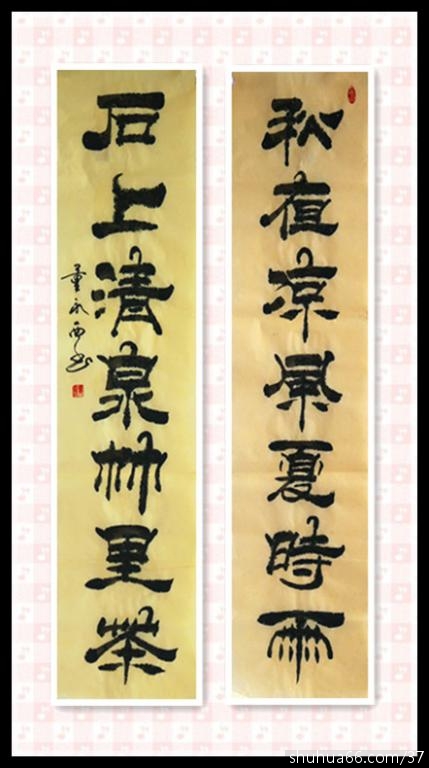 秋夜凉風夏時雨
石上清泉竹里茶
董永西书
shuhua66.com/37